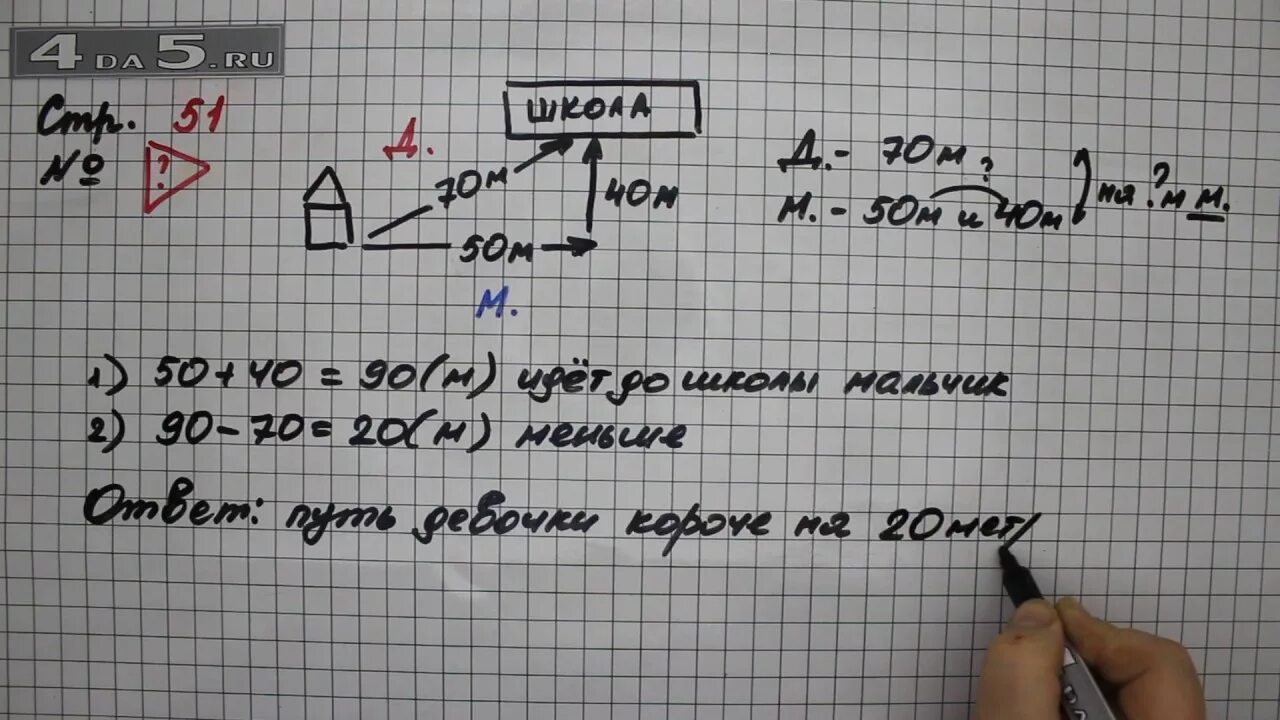 4DA5.RU
Стр. 51
№ ?
ШКОЛА
Д.
70м
40м
50м
М.
Д. - 70м
?
М. - 50м и 40м
на ?м м.
1) 50 + 40 = 90(м) идёт до школы мальчик
2) 90 - 70 = 20(м) меньше
Ответ: путь девочки короче на 20 мет